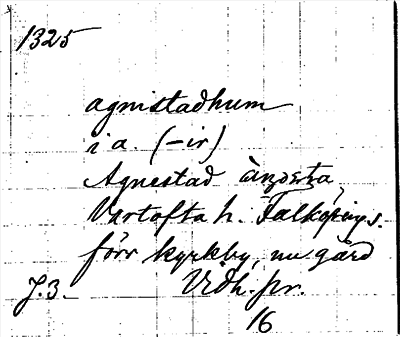 1325
agnistadhum
i a. (–ir)
Agnestad
Vartofta h. Falköpings.
förr kyrkby, nu gård
J. 3. Vidh. pr.
16